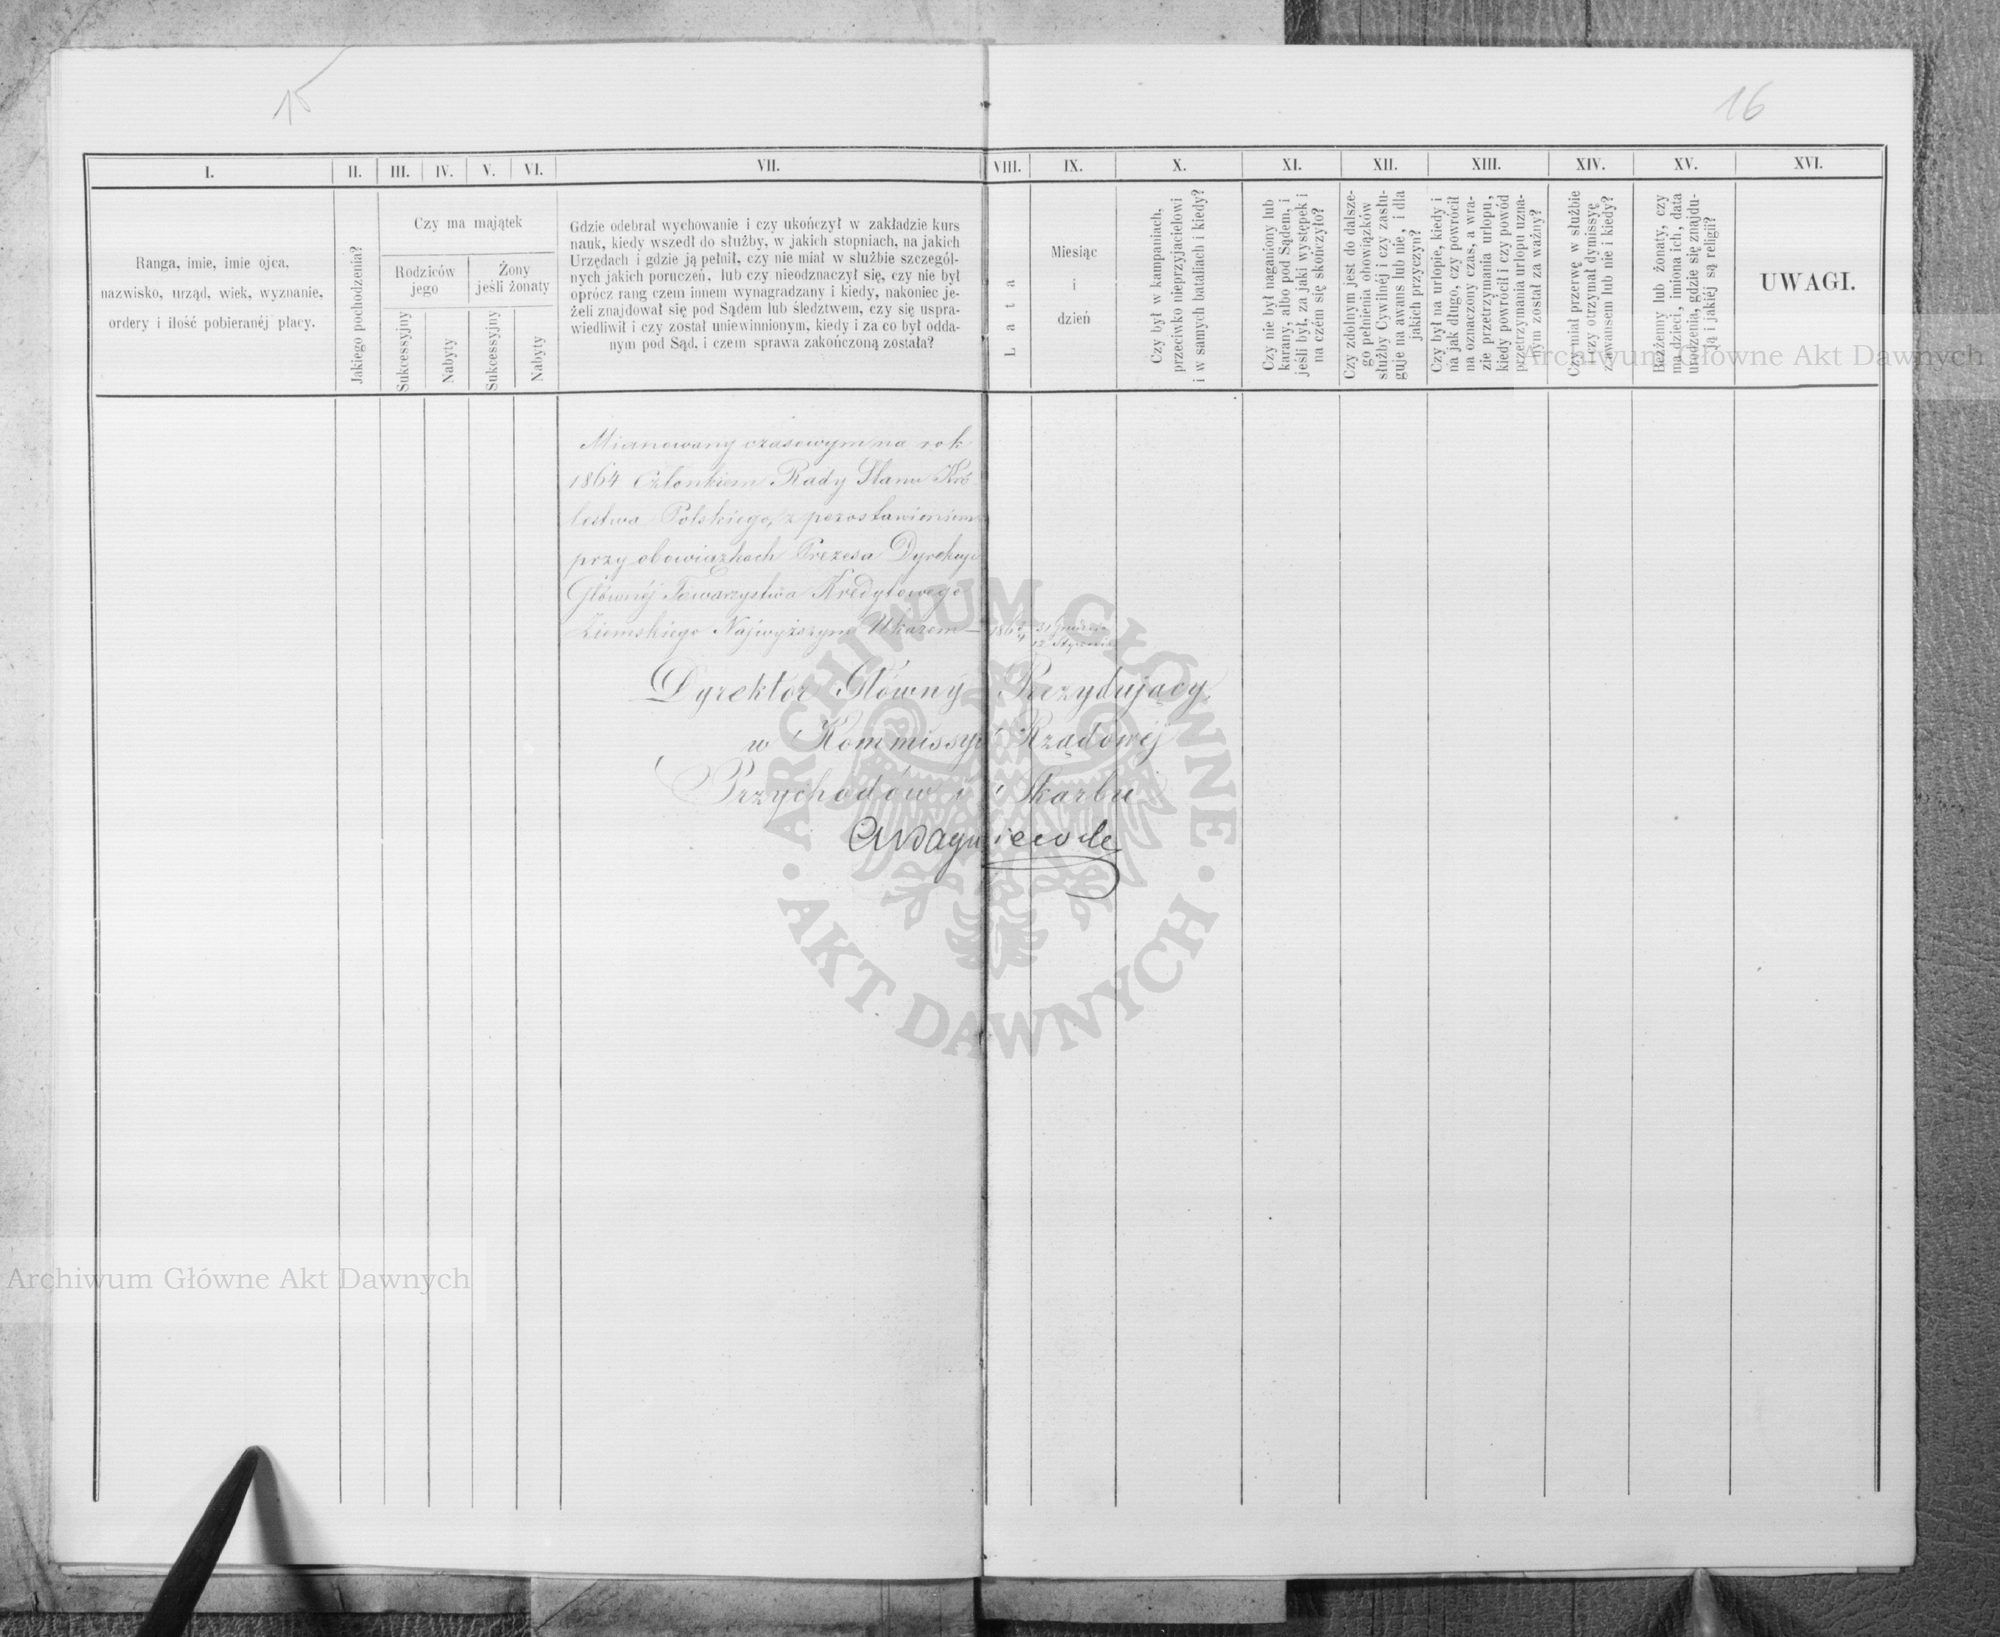 15
16
I.
II.
III.
IV.
V.
VI.
VII.
VIII.
IX.
X.
XI.
XII.
XIII.
XIV.
XV.
XVI.
Ranga, imie, imie ojca,
nazwisko, urząd, wiek, wyznanie,
ordery i ilość pobieranéj płacy.
Jakiego pochodzenia?
Czy ma majątek
Rodziców
jego
Żony
jeśli żonaty
Sukcessyjny
Nabyty
Sukcessyjny
Nabyty
Gdzie odebrał wychowanie i czy ukończył w zakładzie kurs
nauk, kiedy wszedł do służby, w jakich stopniach, na jakich
Urzędach i gdzie ją pełnił, czy nie miał w służbie szczegól-
nych jakich poruczeń, lub czy nieodznaczył się, czy nie był
oprócz rang czem innem wynagradzany i kiedy, nakoniec je-
żeli znajdował się pod Sądem lub śledztwem, czy się uspra-
wiedliwił i czy został uniewinnionym, kiedy i za co był odda-
nym pod Sąd, i czem sprawa zakończoną została?
Lata
Miesiąc
i
dzień
Czy był w kampaniach,
przeciwko nieprzyjacielowi
i w samych bataliach i kiedy?
Czy nie był naganiony lub
karany, albo pod Sądem, i
jeśli był, za jaki występek i
na czém się skończyło?
Czy zdolnym jest do dalsze-
go pełnienia obowiązków
służby Cywilnéj i czy zasłu-
guje na awans lub nie, i dla
jakich przyczyn?
Czy był na urlopie, kiedy i
na jak długo, czy powrócił
na oznaczony czas, a w ra-
zie przetrzymania urlopu,
kiedy powrócił i czy powód
przetrzymania urlopu uzna-
nym został za ważny?
Czy miał przerwę w służbie
i czy otrzymał dymissyę
z awansem lub nie i kiedy?
Bezżenny lub żonaty, czy
ma dzieci, imiona ich, data
urodzenia, gdzie się znajdu-
ją i jakiéj są religii?
UWAGI.
Mianowany czasowym na rok
1864 Członkiem Rady Stanu Kró
lestwa Polskiego, z pozostawieniem
przy obowiązkach Prezesa Dyrekcyi
Głównéj Towarzystwa Kredytowego
Ziemskiego Najwyższym Ukazem — 186 3/4 31 Grudnia
12 Stycznia
Dyrektor Główny Prezydujący
w Kommissyi Rządowéj
Przychodów i Skarbu
Archiwum Główne Akt Dawnych
Archiwum Główne Akt Dawnych
ARCHIWUM GŁÓWNE
AKT DAWNYCH